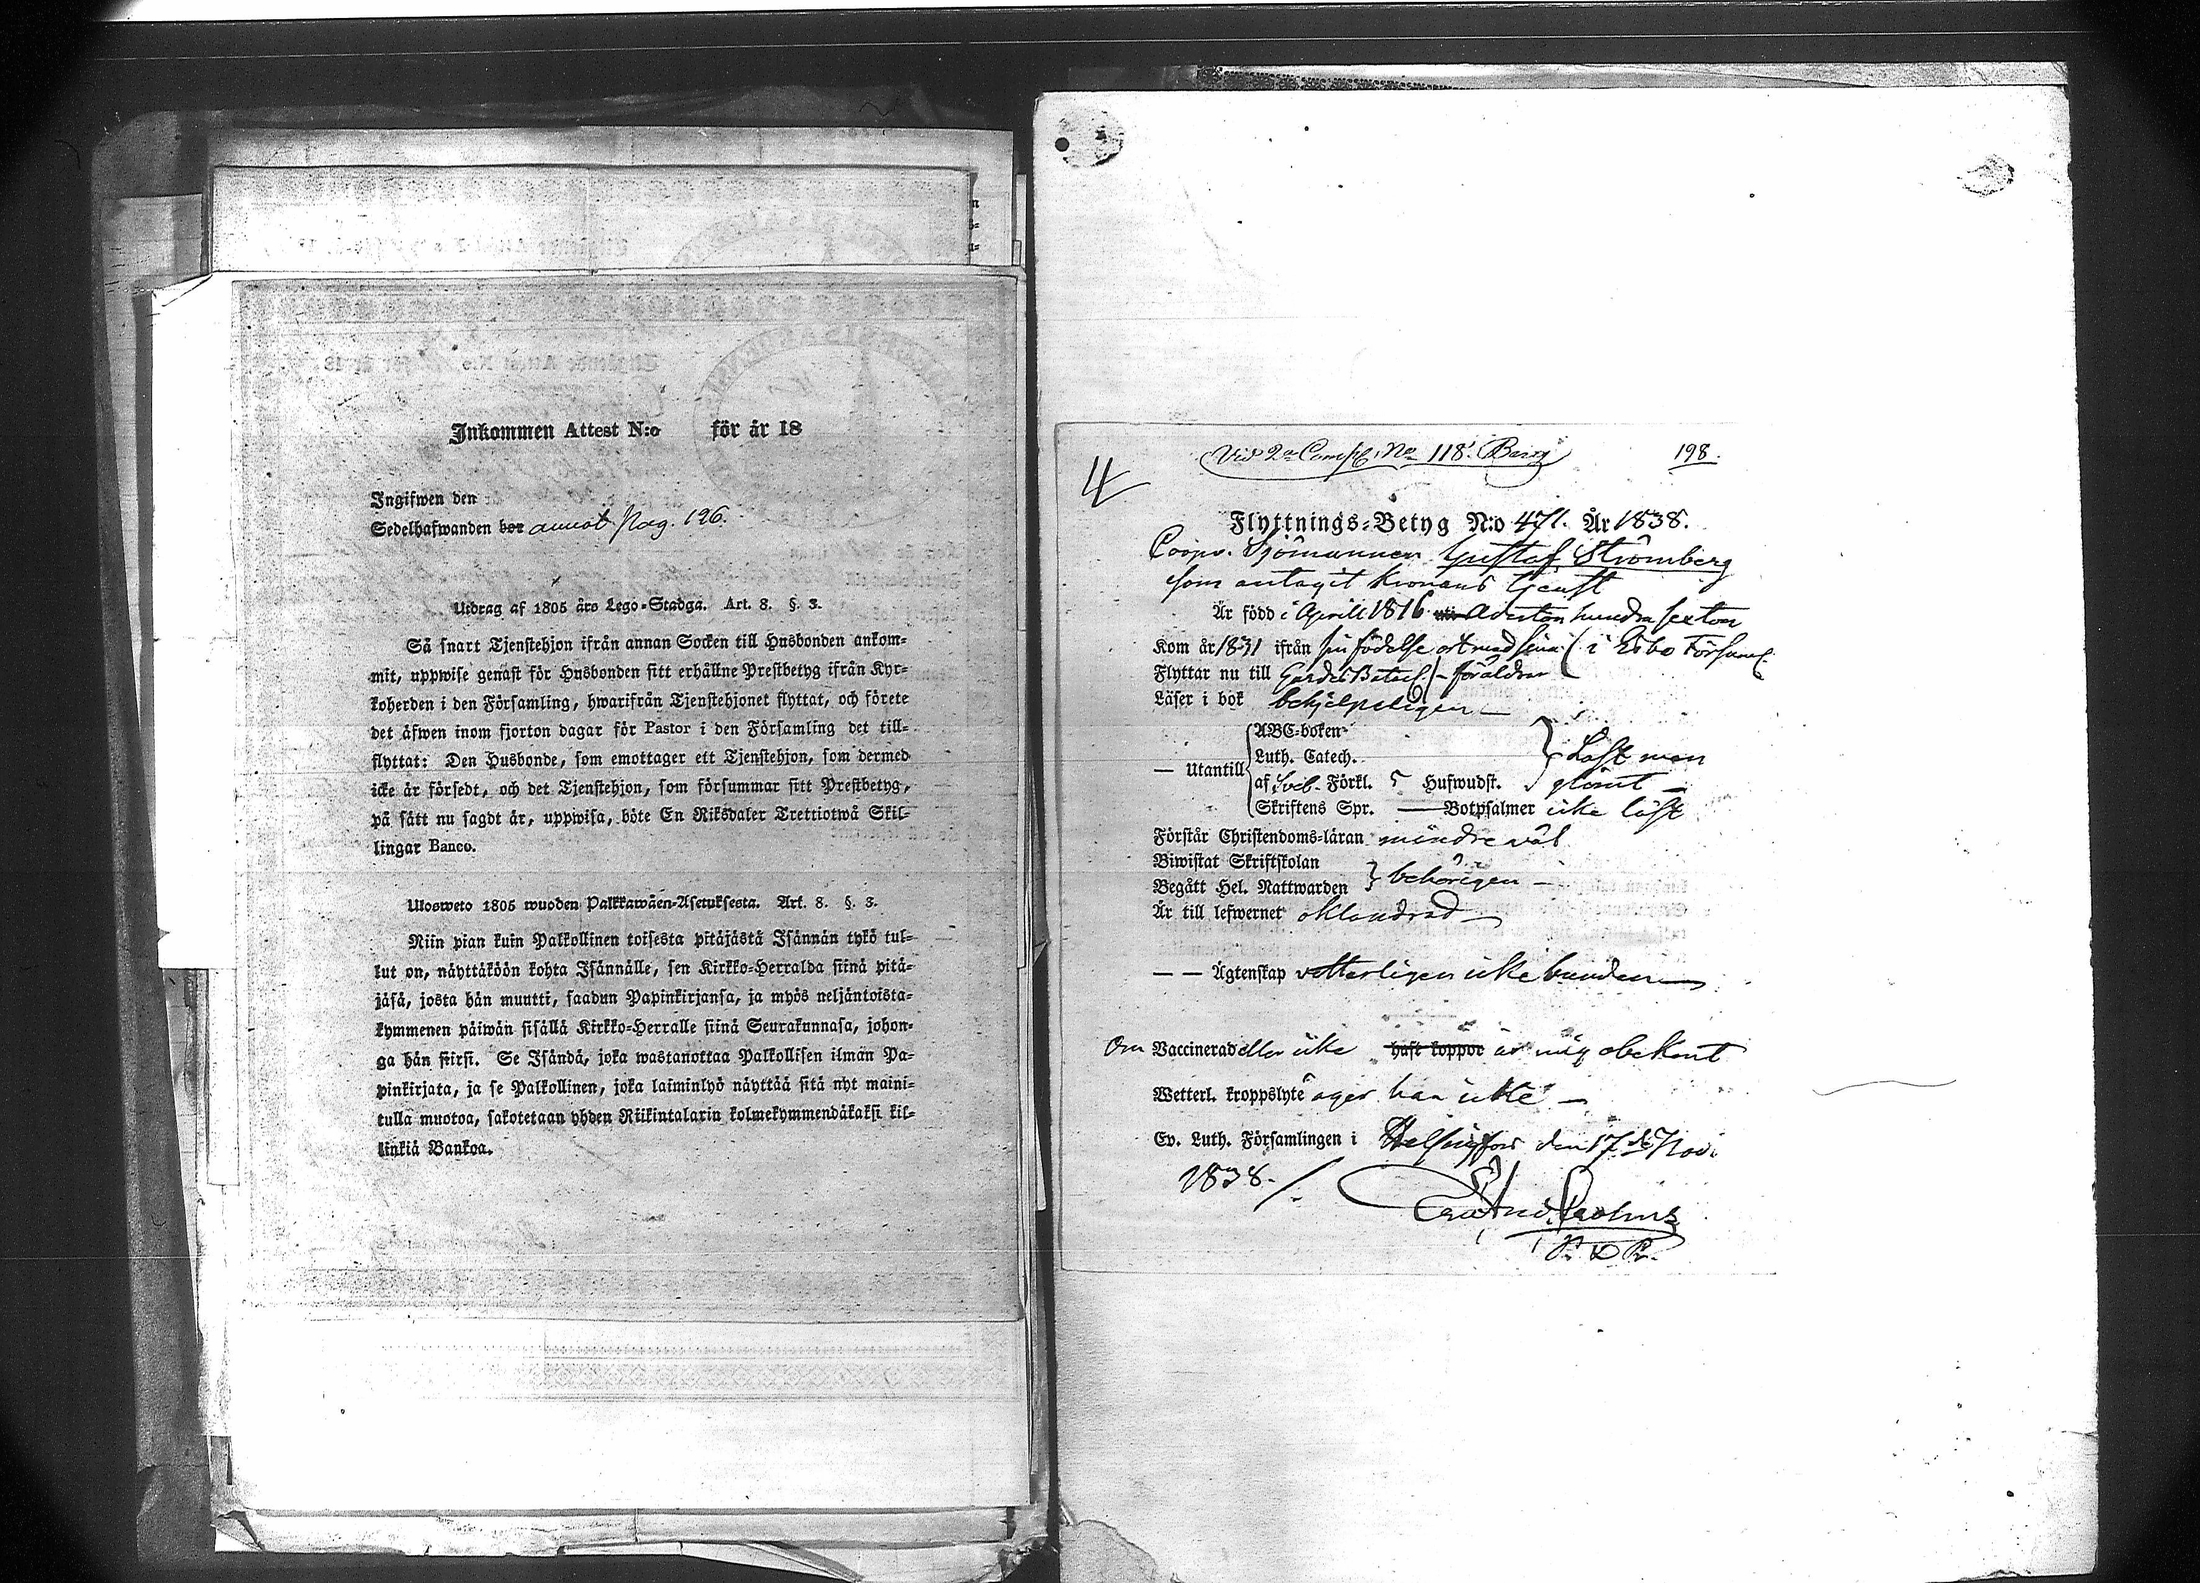 Inkommen Attest N:o för år 18
Ingifwen den
Sedelhafwanden bor annot. Pag. 126.
Utdrag af 1805 års Lego-Stadga. Art. 8. §. 3.
Så snart Tjenstehjon ifrån annan Socken till Husbonden ankom-
mit, uppwise genast för Husbonden sitt erhållne Prestbetyg ifrån Kyr-
koherden i den Församling, hwarifrån Tjenstehjonet flyttat, och förete
det äfwen inom fjorton dagar för Pastor i den Församling det till-
flyttat: Den Husbonde, som emottager ett Tjenstehjon, som dermed
icke är försedt, och det Tjenstehjon, som försummar sitt Prestbetyg,
på sätt nu sagdt är, uppwisa, böte En Riksdaler Trettiotwå Skil-
lingar Banco.
Ulosweto 1805 wuoden Palkkawäen-Asetuksesta. Art. 8. §. 3.
Niin pian kuin Palkollinen toisesta pitäjästä Isännän tykö tul-
lut on, näyttäköön kohta Isännälle, sen Kirkko-Herralda siinä pitä-
jäsä, josta hän muutti, saadun Papinkirjansa, ja myös neljäntoista-
kymmenen päiwän sisällä Kirkko-Herralle siinä Seurakunnasa, johon-
ga hän siirsi. Se Isändä, joka wastanottaa Palkollisen ilman Pa-
pinkirjata, ja se Palkollinen, joka laiminlyö näyttää sitä nyt maini-
tulla muotoa, sakotetaan yhden Riikintalarin kolmekymmendäkaksi kil-
linkiä Bankoa.
Vid 2a Comp. No 118. Barg
198.
4
Flyttnings-Betyg N:o 471. År 1838.
Coopv. Sjömannen Gustaf Strömberg
som antagit Kronans tjenst
Är född i Aprill 1816 Aderton hundra sexton
Kom år 1831 ifrån sin födelse ort med sina föräldrar i Esbo Församl.
Flyttar nu till Gardes Batal.
Läser i bok behjelpeligen
— Utantill ABC-boken
Luth. Catech.
af Sveb. Förkl. 5 Hufwudst. Läst men glömt
Skriftens Spr. — Botpsalmer icke läst
Förstår Christendoms-läran mindre väl
Biwistat Skriftskolan
Begått Hel. Nattwarden behörigen
Är till lefwernet oklandrad
— — Ägtenskap vetterligen icke bunden
Om Vaccinerad eller icke haft koppor är mig obekant
Wetterl. kroppslyte äger han icke
Ev. Luth. Församlingen i Helsingfors den 17de Nov.
1838.